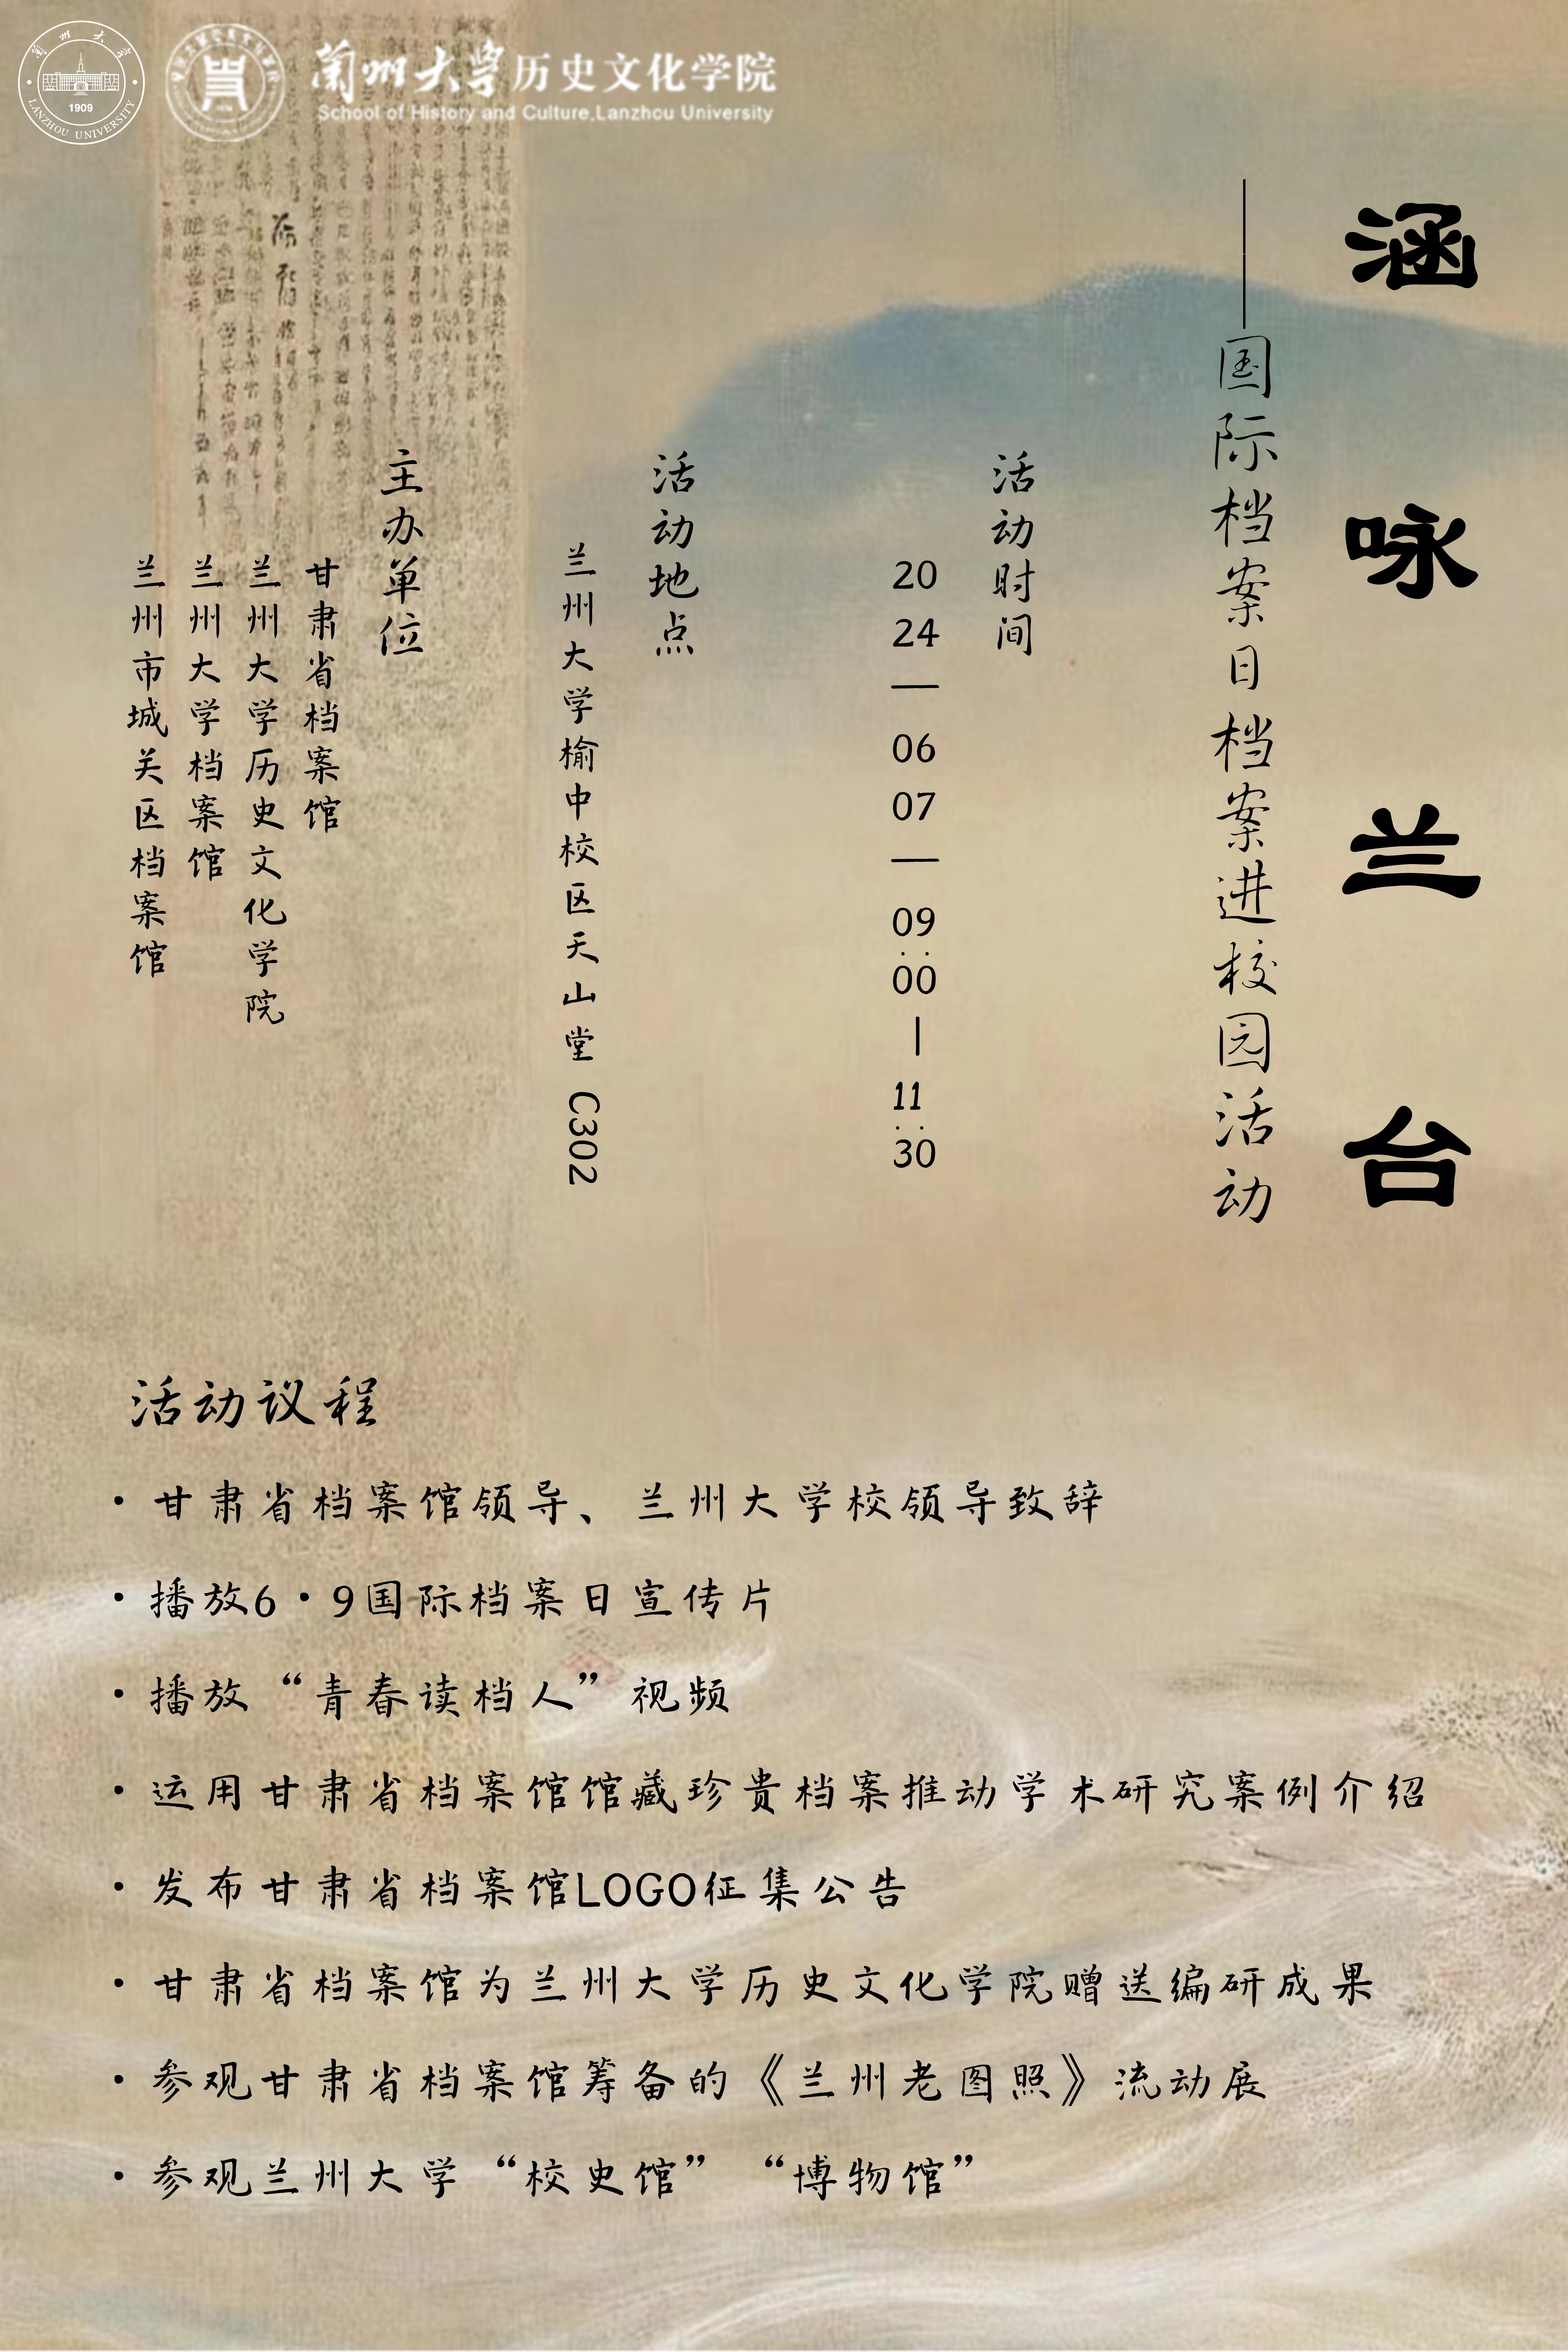 兰州大学
1909
LANZHOU UNIVERSITY
兰州大学历史文化学院
School of History and Culture,Lanzhou University
涵咏兰台
——国际档案日档案进校园活动
活动时间
2024—0607—09:00—11:30
活动地点
兰州大学榆中校区天山堂 C302
主办单位
甘肃省档案馆
兰州大学历史文化学院
兰州大学档案馆
兰州市城关区档案馆
活动议程
· 甘肃省档案馆领导、兰州大学校领导致辞
· 播放6·9国际档案日宣传片
· 播放“青春读档人”视频
· 运用甘肃省档案馆馆藏珍贵档案推动学术研究案例介绍
· 发布甘肃省档案馆LOGO征集公告
· 甘肃省档案馆为兰州大学历史文化学院赠送编研成果
· 参观甘肃省档案馆筹备的《兰州老图照》流动展
· 参观兰州大学“校史馆”“博物馆”